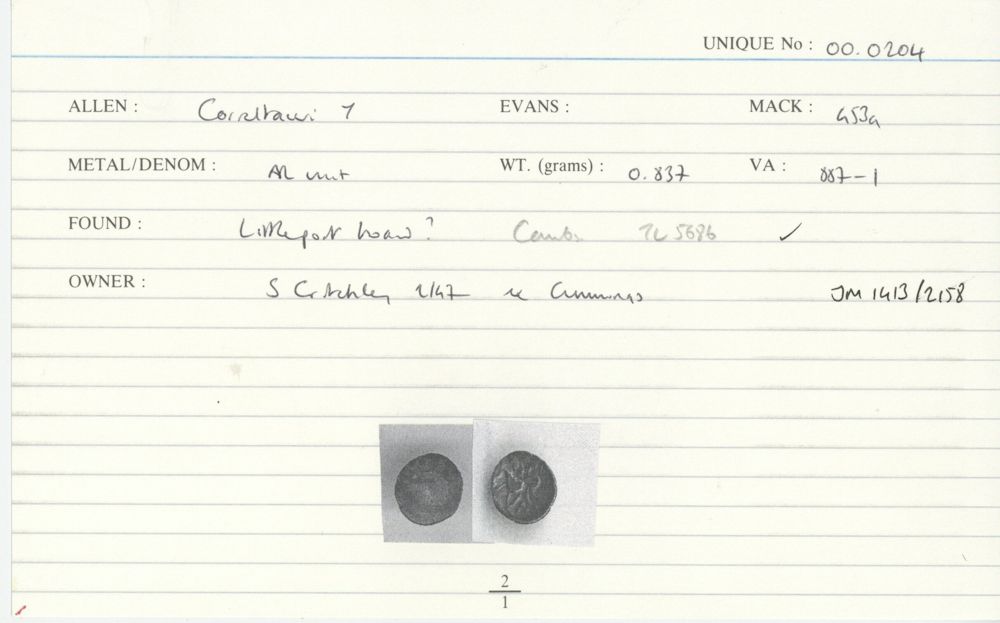 UNIQUE No : 00.0204
ALLEN : Correltauvi 7 EVANS : MACK : 453a
METAL/DENOM : AR unit WT. (grams) : 0.837 VA : 887-1
FOUND : Littleport hoard? Cambs TL 5686 ✓
OWNER : S Critchley 1/47 Cummings JM 1413/2158
2
1